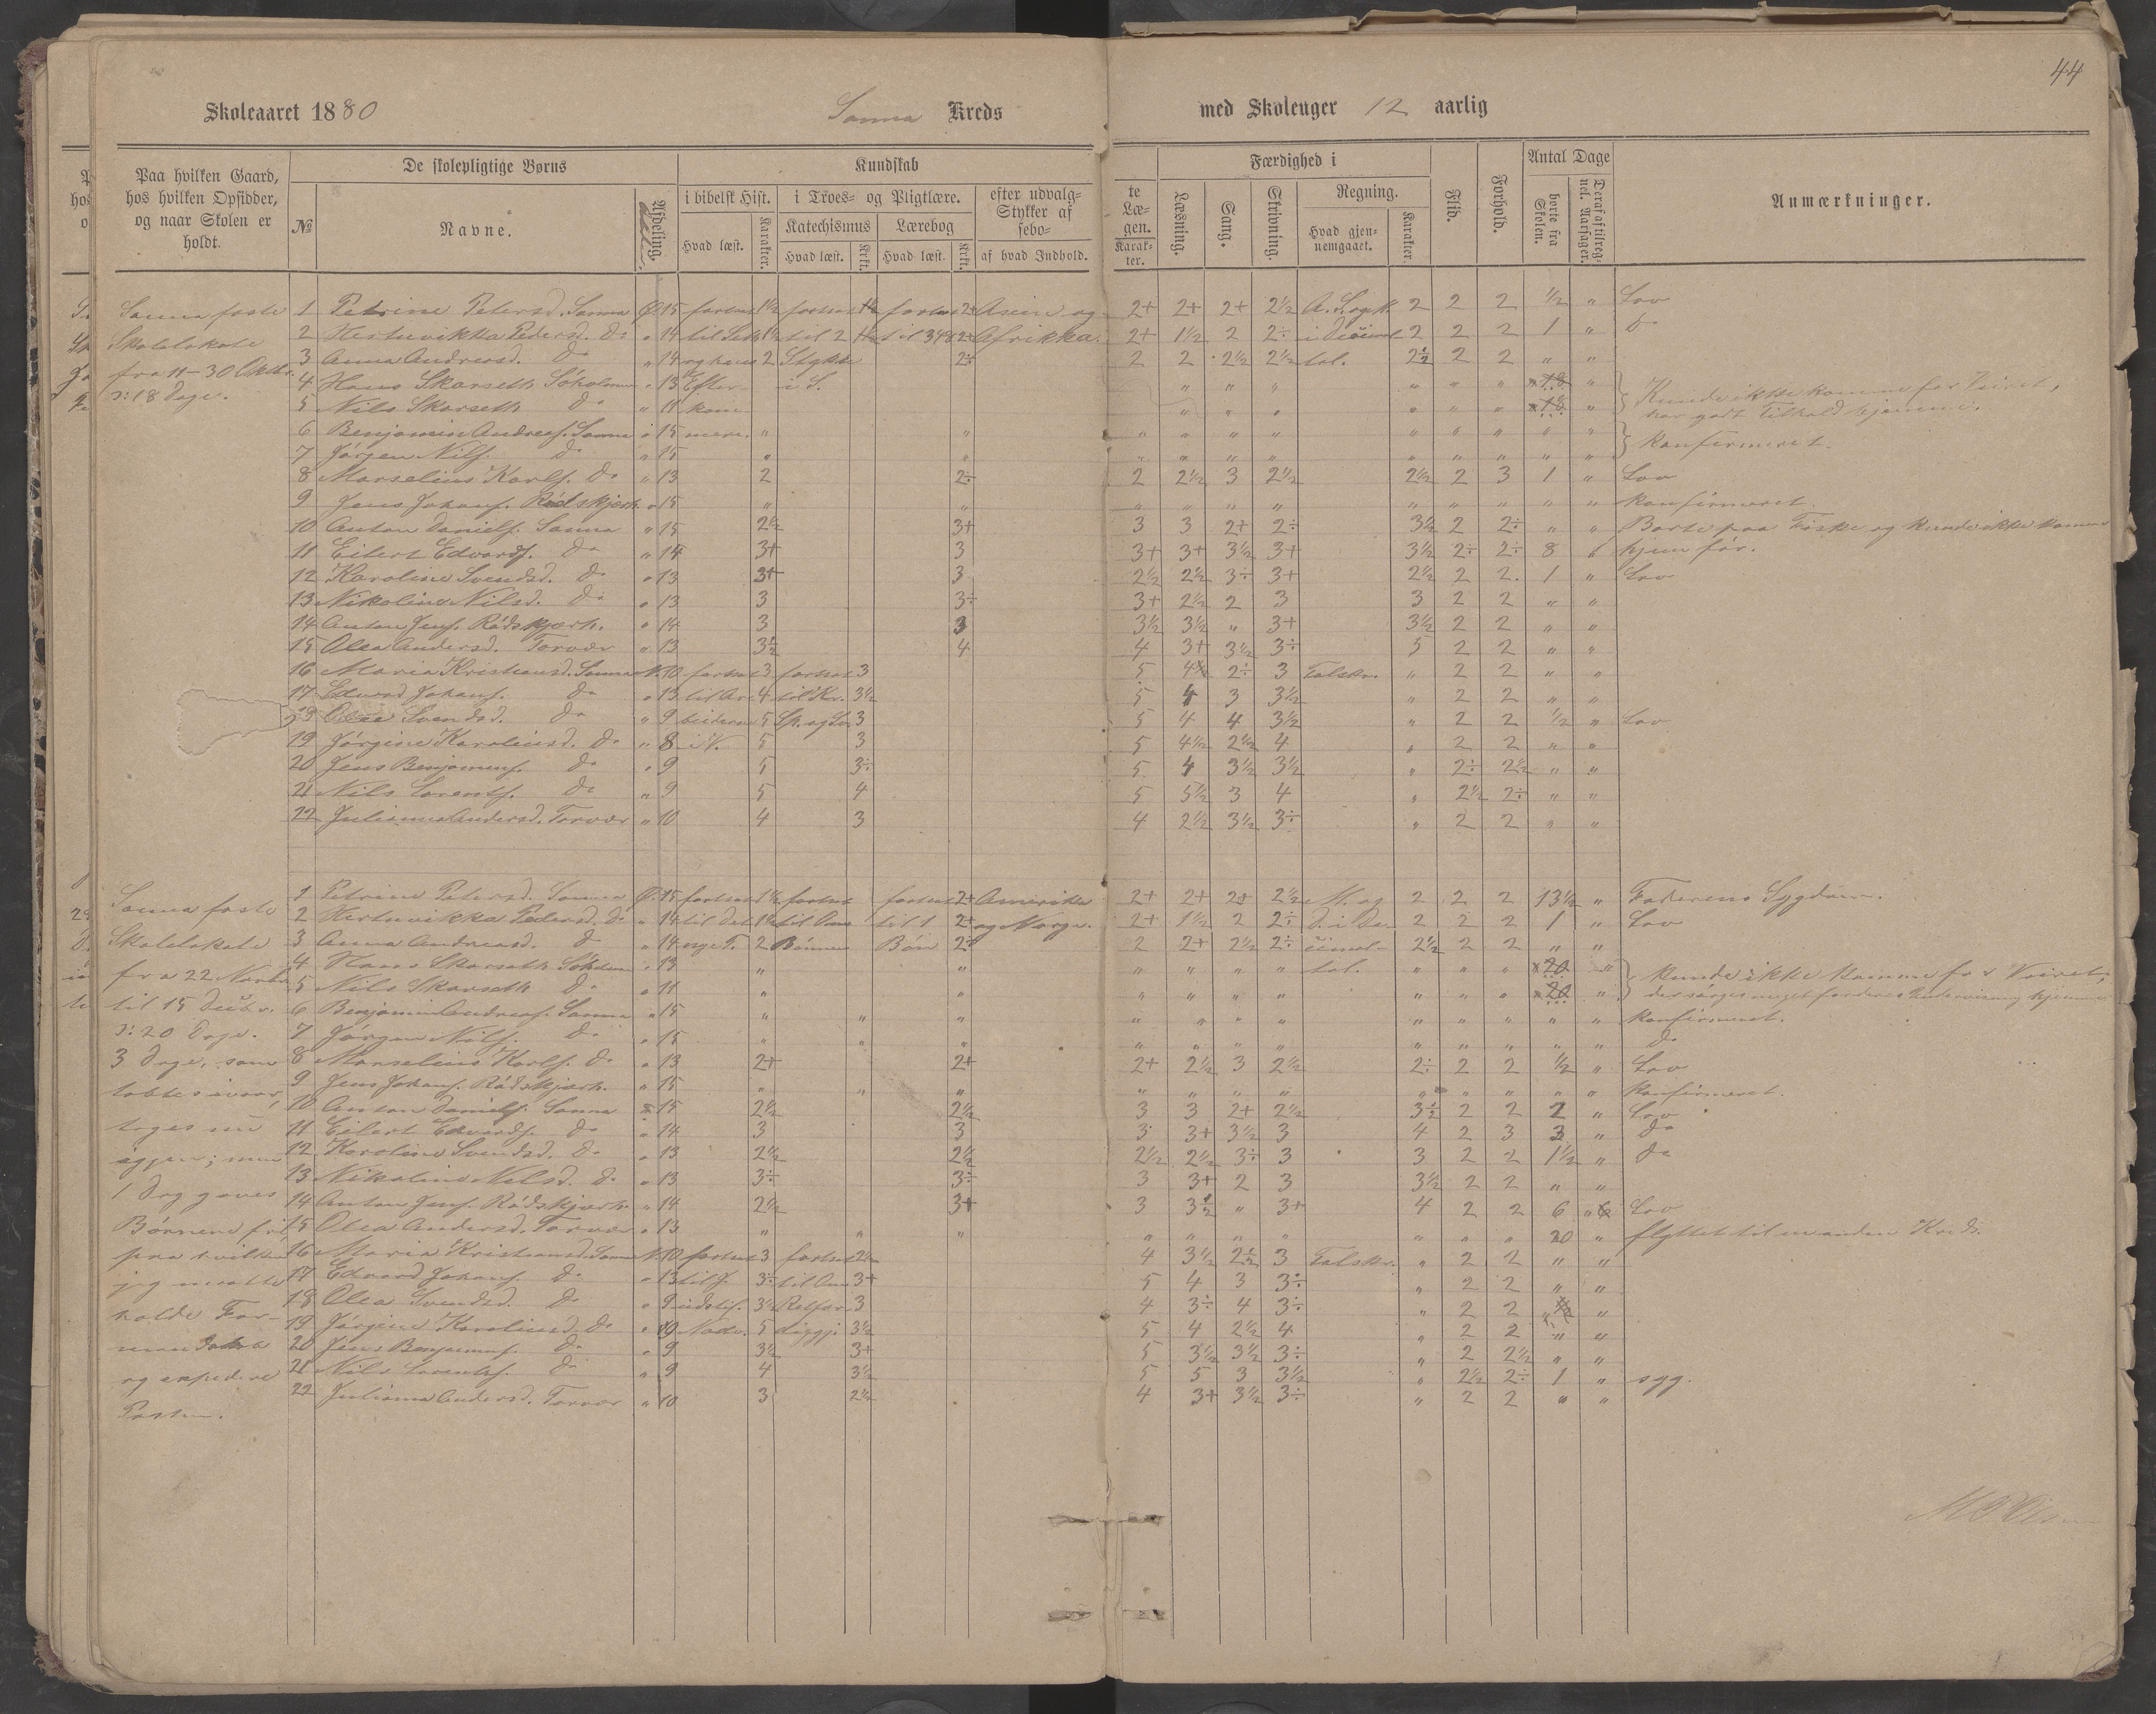 44
Skoleaaret 1880 Sanna Kreds med Skoleuger 12 aarlig
Paa hvilken Gaard, hos hvilken Opsidder, og naar Skolen er holdt.
De skolepligtige Børns
№ Navne. Afdeling.
Kundskab
i bibelsk Hist. i Troes- og Pligtlære. efter udvalg-
Stykker af
sebo-
Katechismus Lærebog
Hvad læst. Karakter. Hvad læst. Krkt. Hvad læst. Krkt. af hvad Indhold.
te Læ-
gen.
Karak-
ter.
Færdighed i
Læsning. Sang. Skrivning. Regning.
Hvad gjen-
nemgaaet. Karakter.
Flid. Forhold. Antal Dage
borte fra Skolen. Deraf af tilreg-
nel. Aarsager.
Anmærkninger.
Sanna faste
Skolelokale
fra 11-30 Oktbr.
ɔ: 18 Dage.
1 Petrine Petersd. Sanna Ø. 15 fortsat 1½ fortsat 1½ fortsat 2+ Asien og 2+ 2+ 2+ 2½ 2 2 2 ½ " Lov
2 Hertuvikka Pedersd. Do " 14 1½ til 2 1½ til 348 2+ Afrikka. 2+ 1½ 2 2÷ 2 2 2 1 " Do
3 Anna Andreasd. Do " 14 2 Stykke 2÷ 2 2 2½ 2½ tal. 2½ 2 2 " "
4 Hans Skarseth Søholmen " 13 Efter- i S. " " " " " " 18 "
5 Nils Skarseth Do " 11 kom- " " " " " " 18 "
Kunde ikke komme for Veiret,
har godt Tilhold hjemme.
6 Benjamin Andreas. Sanna " 15 mere. " " " " " " " " " " "
7 Jørgen Nils. Do " 15 " " " " " " " " " " "
konfirmeret.
8 Marselius Karls. Do " 13 2 2÷ 2 2½ 3 2½ 2½ 2 3 1 " Lov
9 Jens Johans. Rødskjærh. " 15 " " " " " " " " " " " konfirmeret.
10 Anton Daniels. Sanna " 15 2½ 3+ 3 3 2+ 2÷ 3½ 2 2÷ " " Borte paa Fiske og kunde ikke komme
11 Eilert Edvards. Do " 14 3+ 3 3+ 3+ 3½ 3+ 3½ 2÷ 2÷ 8 " hjem før.
12 Karoline Svendsd. Do " 13 3+ 3 2½ 2½ 3÷ 3+ 2½ 2 2 1 " Lov
13 Nikoline Nilsd. Do " 13 3 3÷ 3+ 2½ 2 3 3 2 2 " "
14 Anton Jens. Rødskjærh. " 14 3 3 3½ 3½ " 3+ 3½ 2 2 " "
15 Olea Andersd. Torvær " 13 3½ 4 4 3+ 3½ 3÷ 5 2 2 " "
16 Maria Kristiansd. Sanna N. 10 fortsat 3 fortsat 3 5 2÷ 3 Talskr. " 2 2 " "
17 Edvard Johans. Do " 13 4 til Kr. 3½ 5 4 3 3½ " 2 2 " "
18 Olea Svendsd. Do " 9 5 3 5 4 4 3½ " 2 2 ½ " Lov
19 Jørgine Karoliusd. Do " 8 i N. 5 3 5 4½ 2½ 4 " 2 2 " "
20 Jens Benjamins. Do " 9 5 3÷ 5 4 3½ 3½ " 2÷ 2½ " "
21 Nils Lorents. Do " 9 5 4 5 5½ 3 4 " 2½ 2÷ " "
22 Julianna Andersd. Torvær " 10 4 3 4 2½ 3½ 3÷ " 2 2 " "
Sanna faste
Skolelokale
fra 22 Novbr.
til 15 Decbr.
ɔ: 20 Dage.
3 Dage, som
tabtes ivaar,
toges nu
igjen; men
1 Dag gaves
Børnene fri,
paa hvilken
jeg maatte
holde For-
og expedere
Posten.
1 Petrine Petersd. Sanna Ø. 15 fortsat 1½ fortsat fortsat 2+ Amerika 2+ 2+ 2+ 2½ M. og 2 2 2 13½ " Faderens Sygdom.
2 Hertuvikka Pedersd. Do " 14 til det 1½ til Ane til 1 2+ og Norge. 2+ 1½ 2 2÷ 2 2 2 1 " Lov
3 Anna Andreasd. Do " 14 nye T. 2 Bønnen Bøn 2÷ 2 2+ 2½ 2÷ 2½ 2 2 " "
4 Hans Skarseth Søholmen " 13 " " " " " " tal. " " " 20 "
5 Nils Skarseth Do " 11 " " " " " " " " " 20 "
Kunde ikke komme for Veiret;
der sørges meget for deres Undervisning hjemme
6 Benjamin Andreas. Sanna " 15 " " " " " " " " " " " " konfirmeret.
7 Jørgen Nils. Do " 15 " " " " " " " " " " " " Do
8 Marselius Karls. Do " 13 2+ 2+ 2+ 2½ 3 2½ 2÷ 2 2 ½ " Lov
9 Jens Johans. Rødskjærh. " 15 " " " " " " " " " " " " konfirmeret.
10 Anton Daniels. Sanna " 15 2½ 2½ 3 3 2+ 2½ 3½ 2 2 2 " Lov
11 Eilert Edvards. Do " 14 3 3 3 3+ 3½ 3 4 2 3 3 " Do
12 Karoline Svendsd. Do " 13 2½ 2½ 2½ 2½ 3÷ 3 3 2 2 1½ " Do
13 Nikoline Nilsd. Do " 13 3÷ 3÷ 3 3+ 2 3 3½ 2 2 " "
14 Anton Jens. Rødskjærh. " 14 2½ 3+ 3 3½ " 3+ 4 2 2 6 " Lov
15 Olea Andersd. Torvær " 13 " " " " " " " " " " 20 " flyttet til en anden Kreds.
16 Maria Kristiansd. Sanna N. 10 fortsat 3 fortsat 2½ 4 3½ 2½ 3 Talskr. " 2 2 " "
17 Edvard Johans. Do " 13 til J. 3÷ 3+ 5 4 3 3÷ " 2 2 " "
18 Olea Svendsd. Do " 9 3½ 3 4 3÷ 4 3÷ " 2 2 "
19 Jørgine Karoliusd. Do " 9 Nadv. 5 3½ 5 4 2½ 4 " 2 2 " "
20 Jens Benjamins. Do " 9 3½ 3+ 5 3½ 3½ 3÷ " 2 2½ " "
21 Nils Lorents. Do " 9 4 3½ 5 5 3 3½ " 2½ 2÷ 1 " syg.
22 Julianna Andersd. Torvær " 10 3 2½ 4 3+ 3½ 3÷ " 2 2 " "